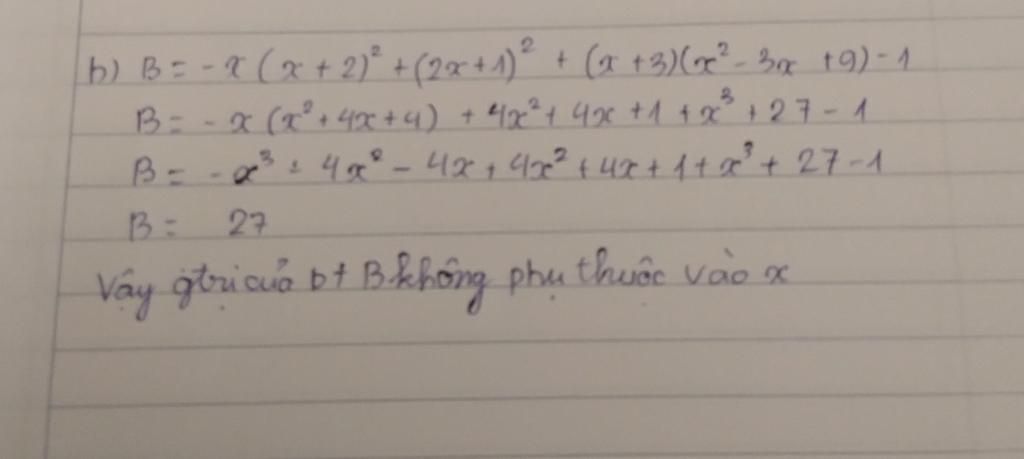 b) B = - x (x + 2)² + (2x + 1)² + (x + 3)(x² - 3x + 9) - 1
B = - x (x² + 4x + 4) + 4x² + 4x + 1 + x³ + 27 - 1
B = - x³ - 4x² - 4x + 4x² + 4x + 1 + x³ + 27 - 1
B = 27
Vậy gtrị của bt B không phụ thuộc vào x